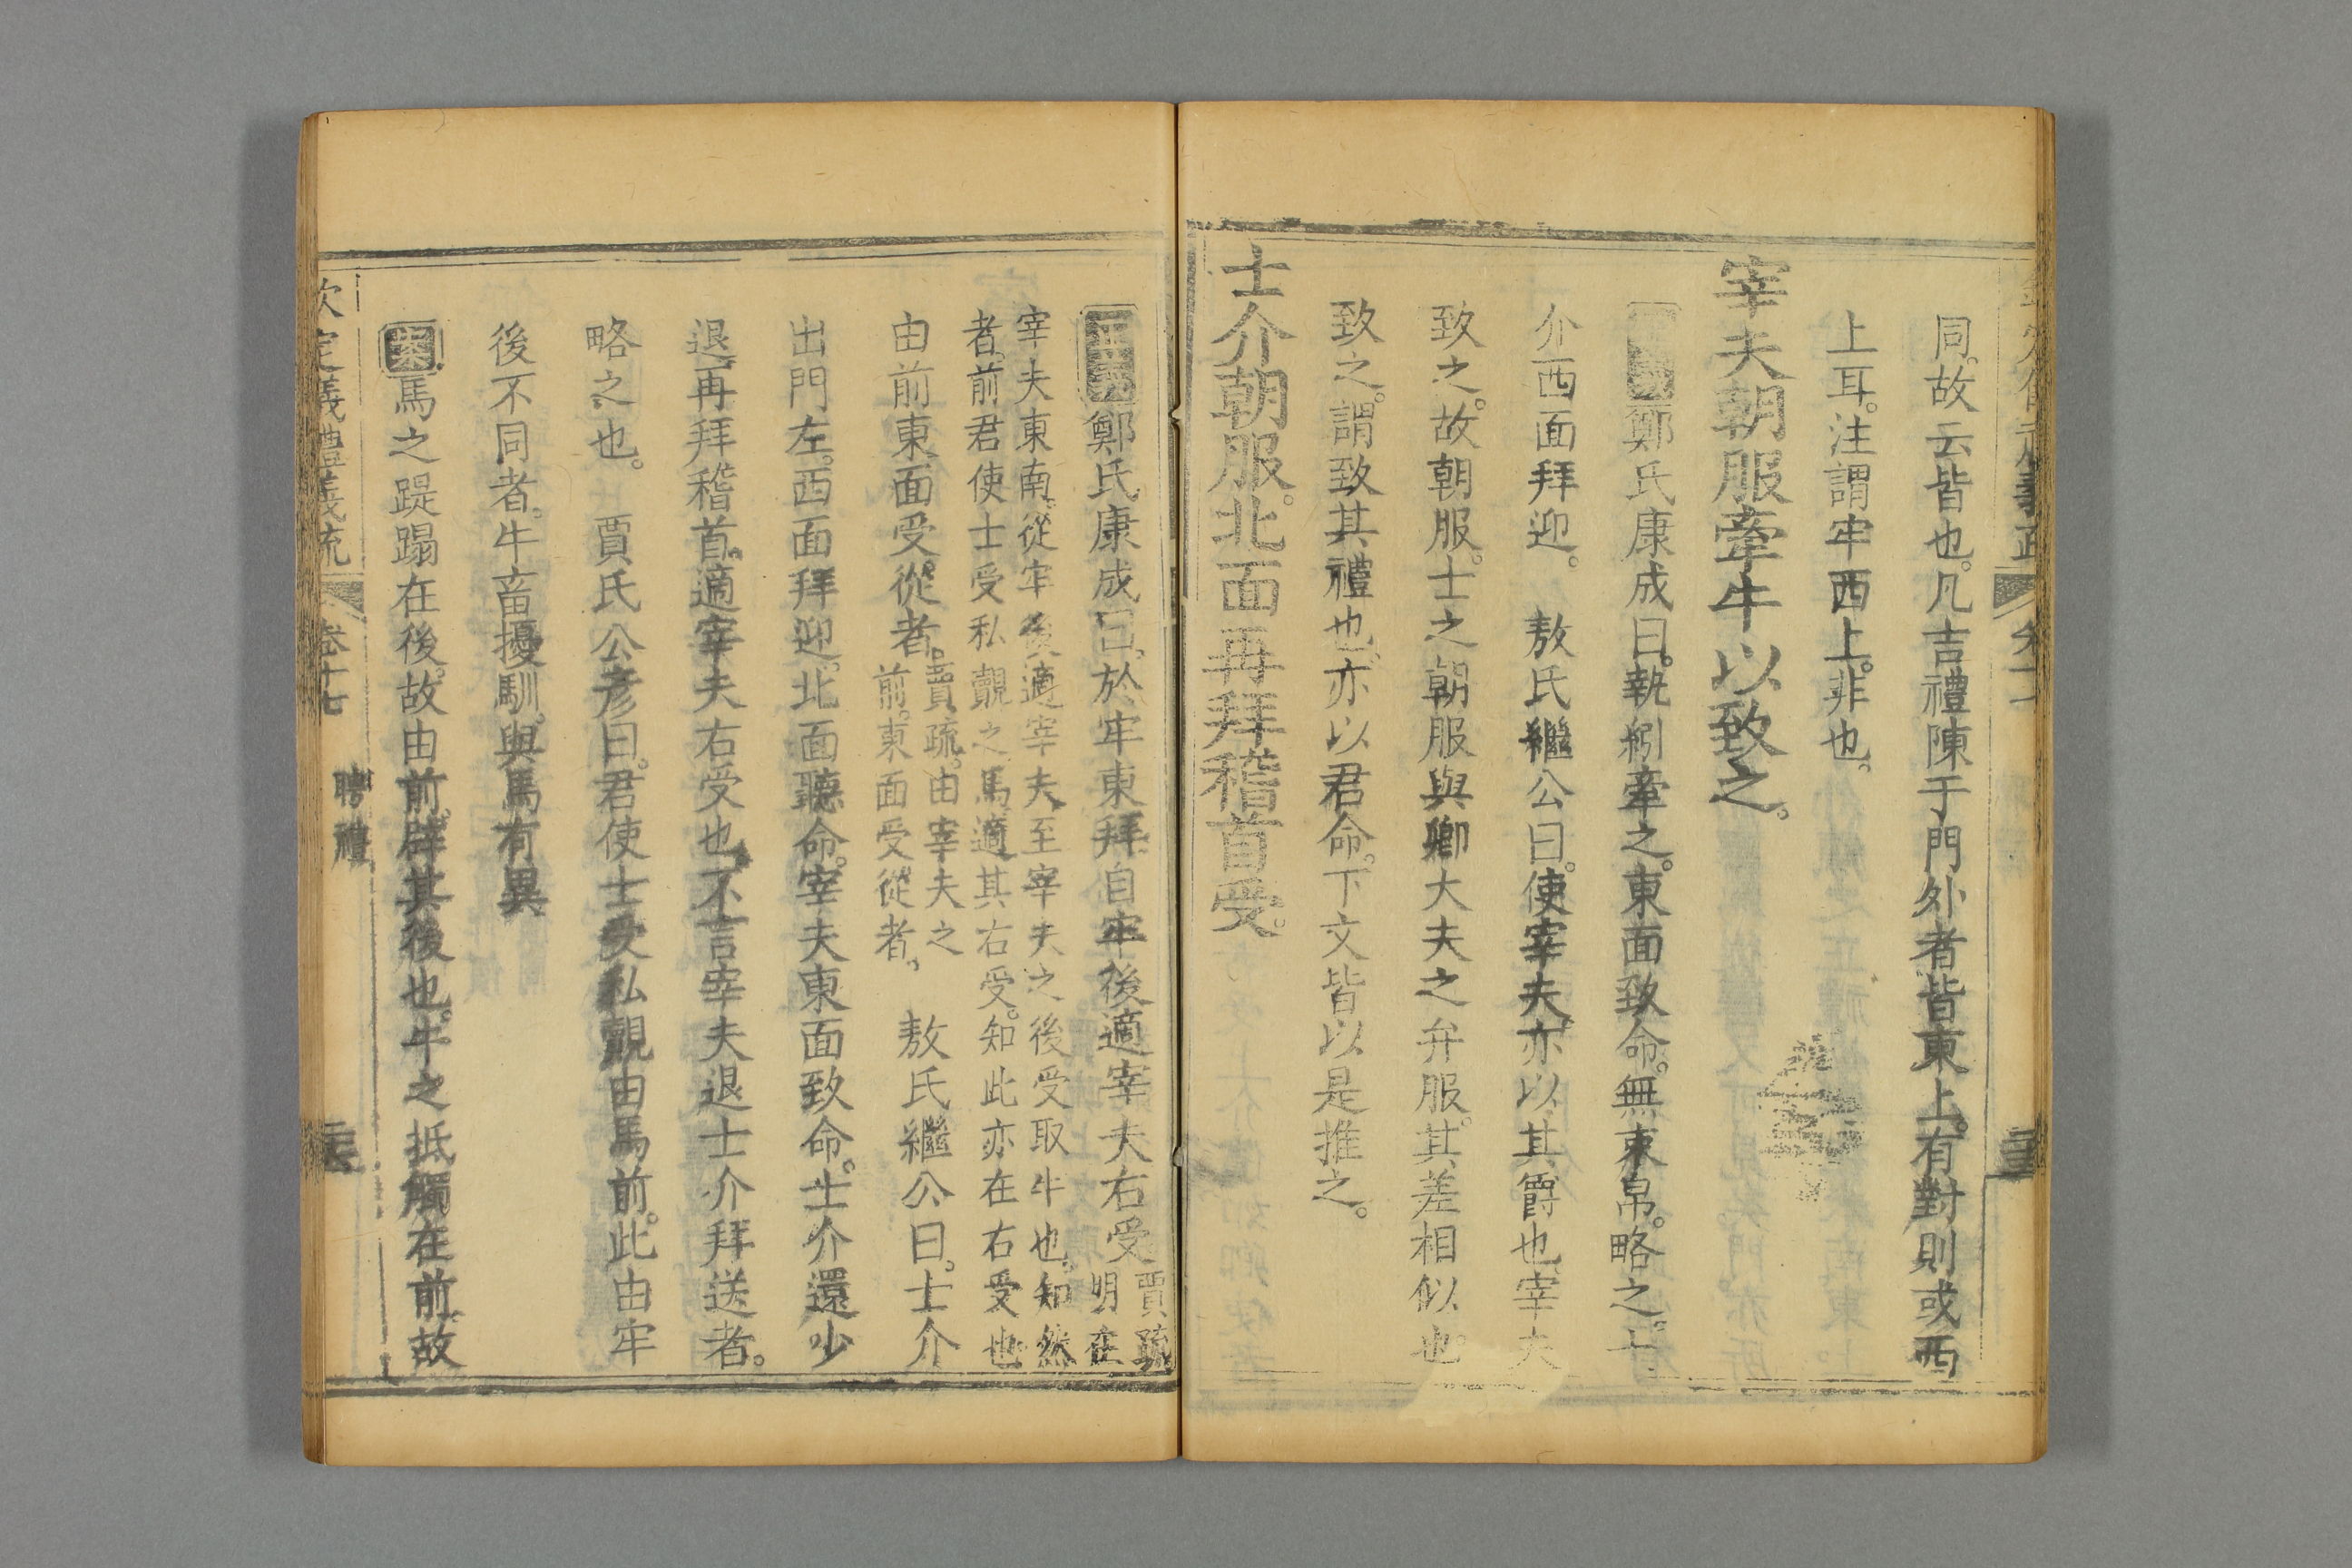 同。故云皆也。凡吉禮陳于門外者皆東上。有對則或西
上耳。注謂牢西上。非也。
宰夫朝服牽牛以致之。
鄭氏康成曰。執紖牽之。東面致命。無束帛。略之。士
介西面拜迎。 敖氏繼公曰。使宰夫。亦以其爵也。宰夫
致之。故朝服。士之朝服與卿大夫之弁服。其差相似也。
致之。謂致其禮也。亦以君命。下文皆以是推之。
士介朝服。北面再拜稽首受。
正義鄭氏康成曰。於牢東拜自牢後適宰夫右受
賈疏
明在
宰夫東南。從牢後適宰夫至宰夫之後受取牛也。知然
者。前君使士受私覿之馬適其右受。知此亦在右受也
由前東面受從者。
賈疏。由宰夫之
前。東面受從者。
敖氏繼公曰。士介
出門左。西面拜迎。北面聽命。宰夫東面致命。士介還少
退。再拜稽首。適宰夫右受也。不言宰夫退士介拜送者。
略之也。 賈氏公彥曰。君使士受私覿由馬前。此由牢
後不同者。牛畜擾馴。與馬有異
案馬之踶蹋在後。故由前。辟其後也。牛之抵觸在前。故
欽定儀禮義疏 卷十七 聘禮